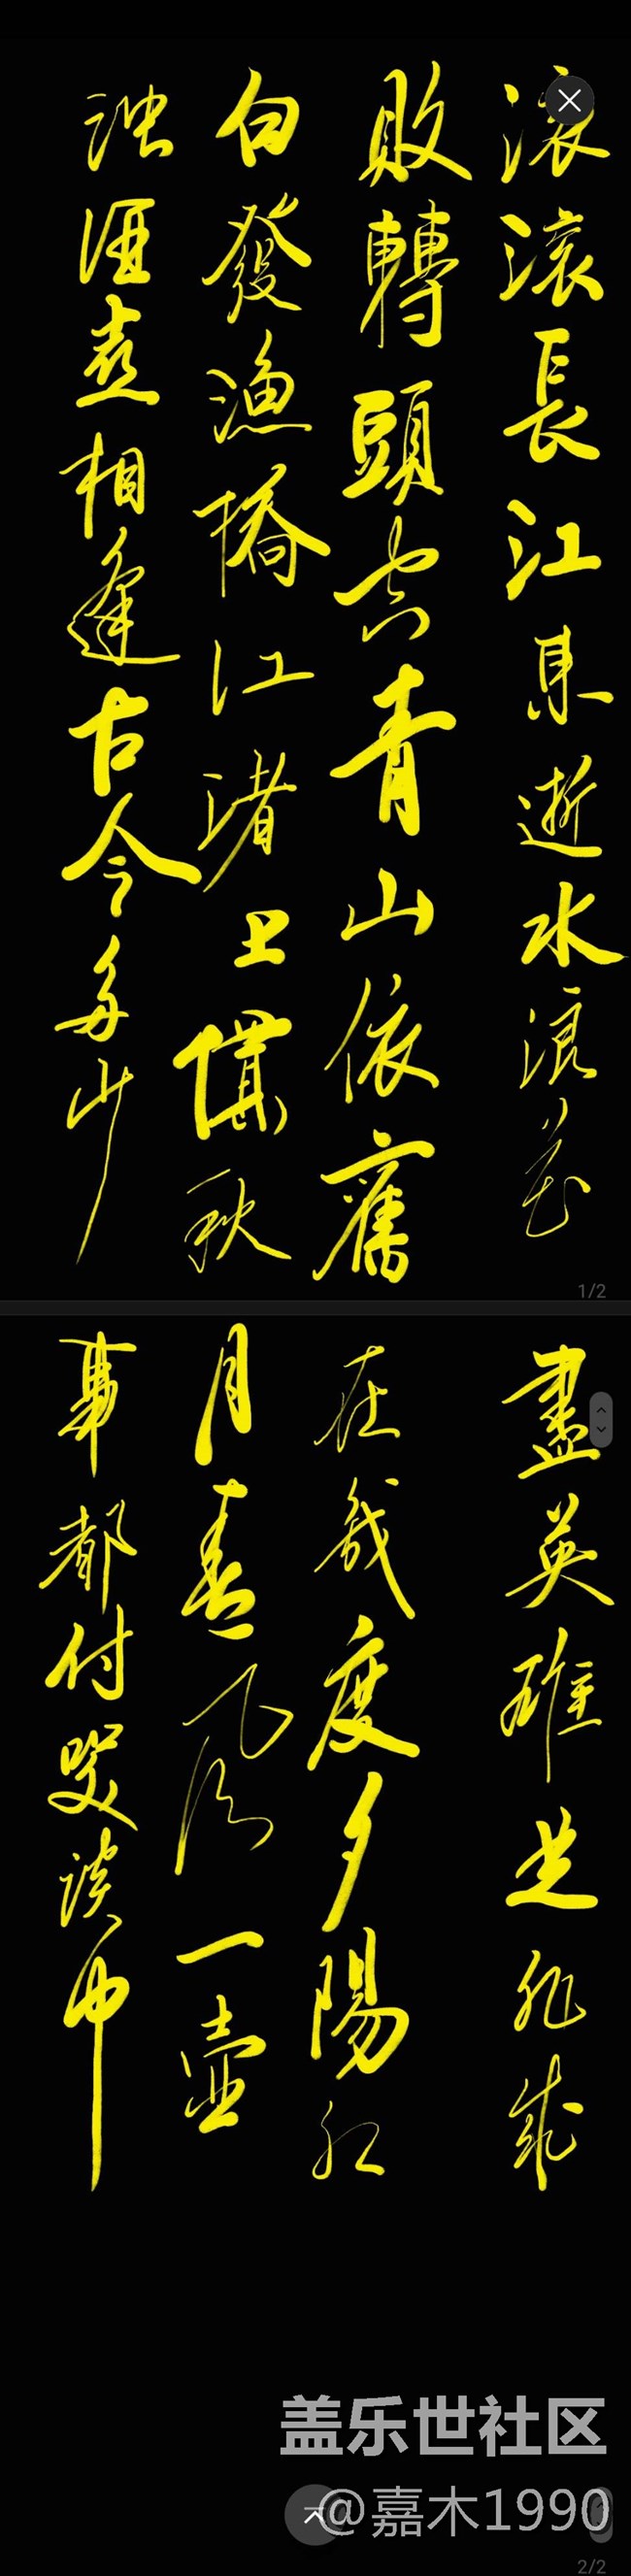 滚滚長江東逝水浪花
敗轉頭空青山依舊
白發漁橋江渚上慣秋
浊酒喜相逢古今多少
1/2
盡英雄是非成
在幾度夕陽红
月春风一壺
事都付笑談中
盖乐世社区
@嘉木1990
2/2